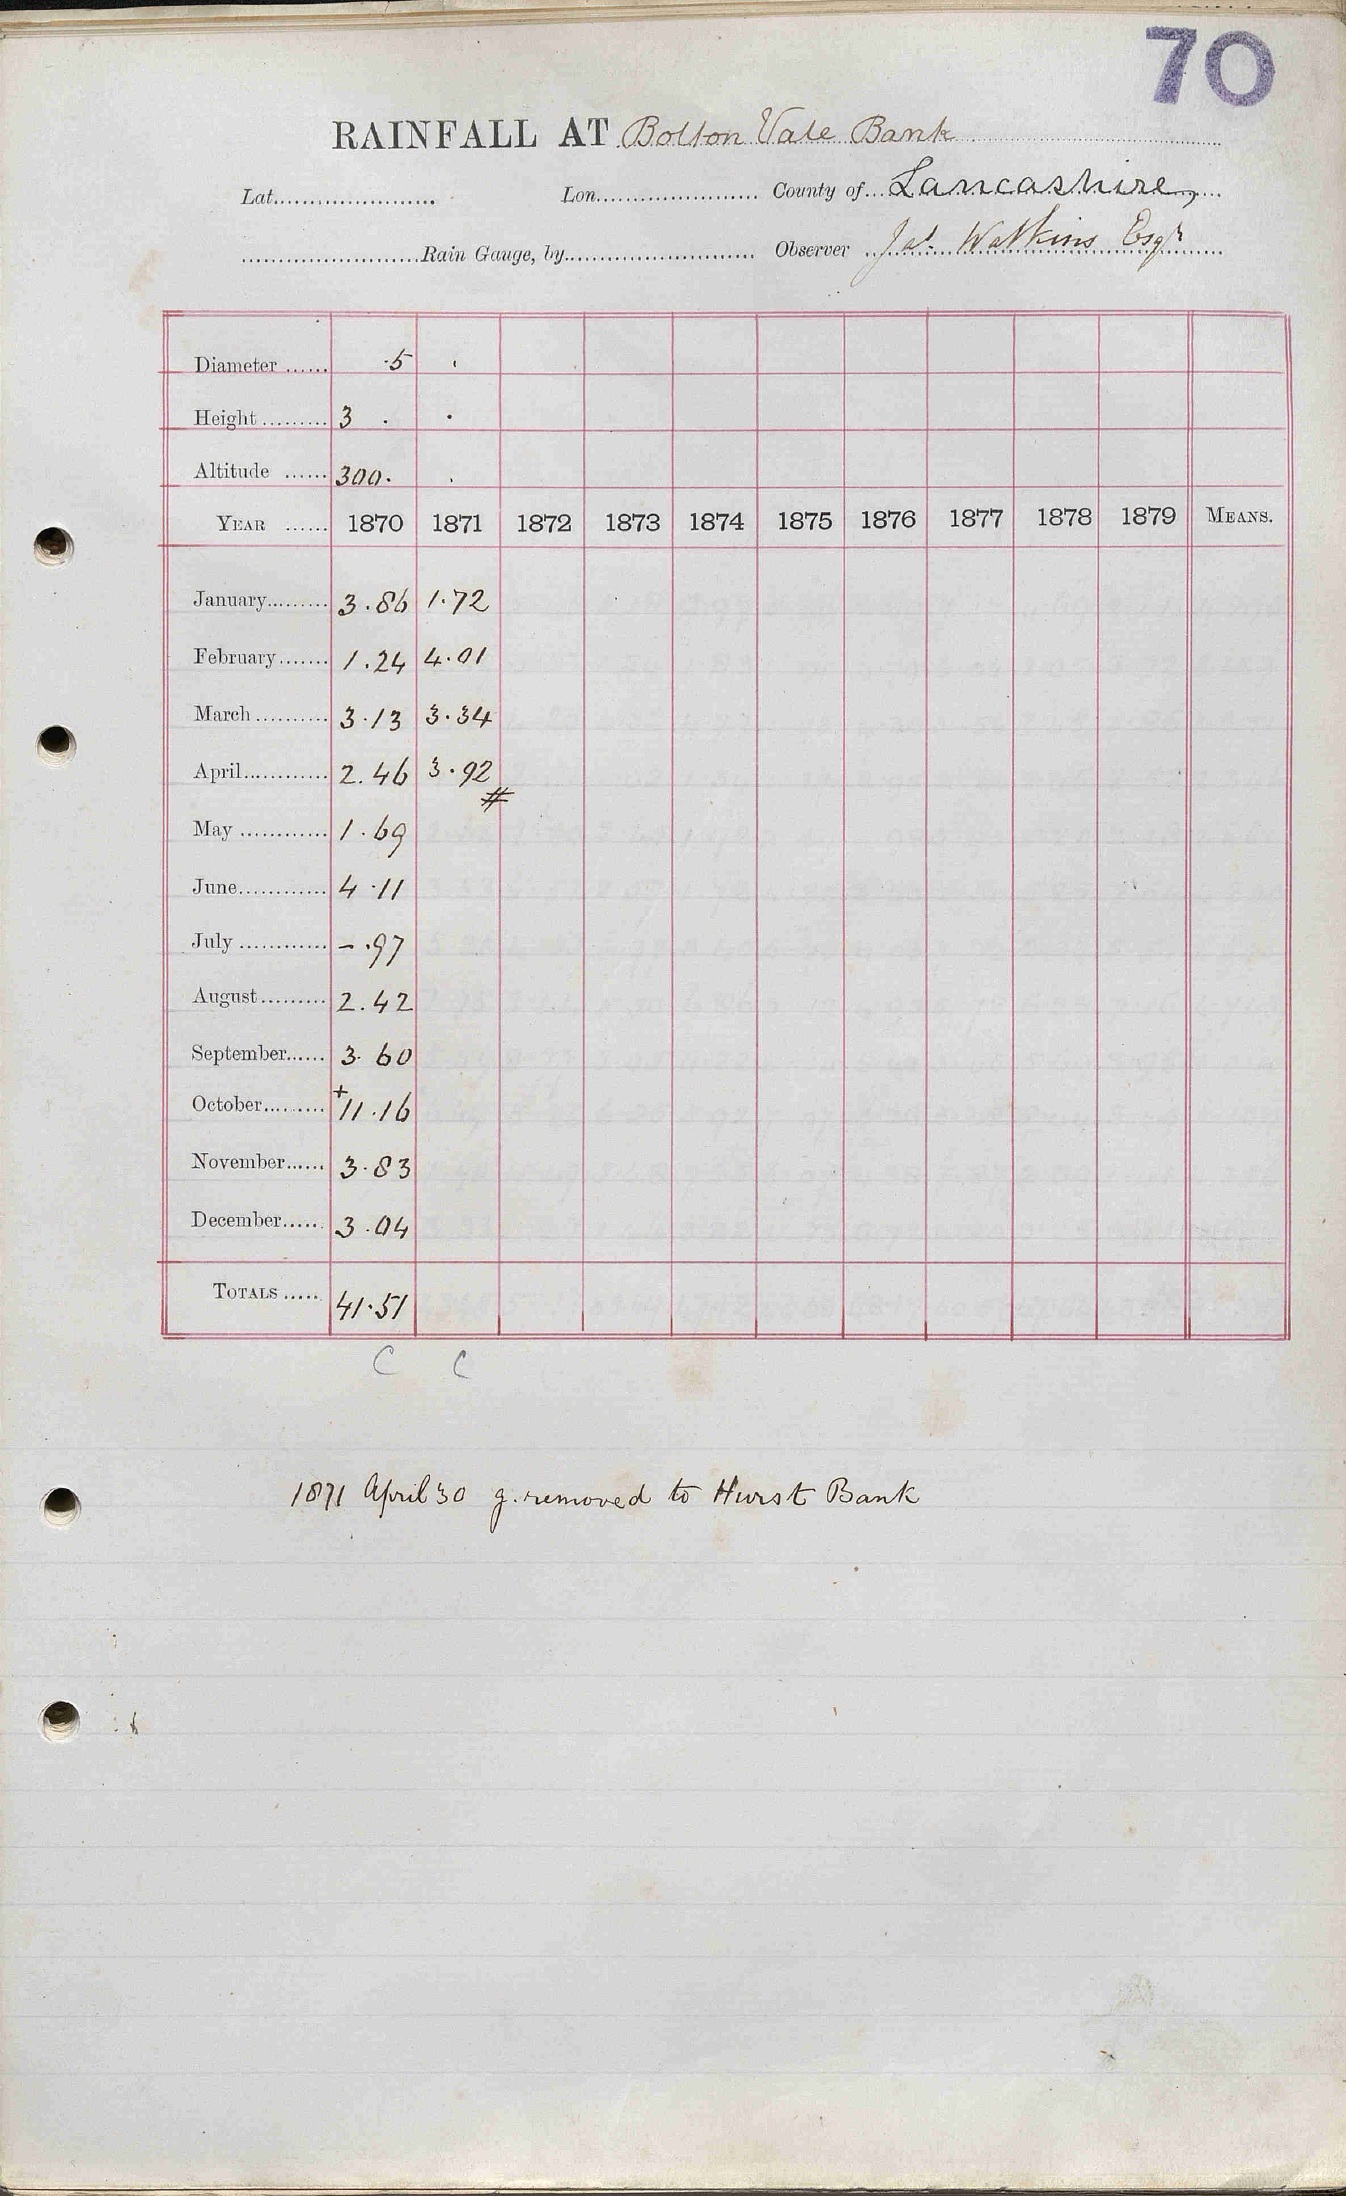 70
RAINFALL AT Bolton Vale Bank
Lat. Lon. County of Lancashire,
Rain Gauge, by Observer Jas. Watkins Esqr
Diameter ·5 ·
Height 3 · ·
Altitude 300· ·
YEAR 1870 1871 1872 1873 1874 1875 1876 1877 1878 1879 MEANS.
January 3.86 1.72
February 1.24 4.01
March 3.13 3.34
April 2.46 3.92
#
May 1.69
June 4.11
July – .97
August 2.42
September 3.60
October +11.16
November 3.83
December 3.04
TOTALS 41.51
C C
1871 April 30 g. removed to Hurst Bank